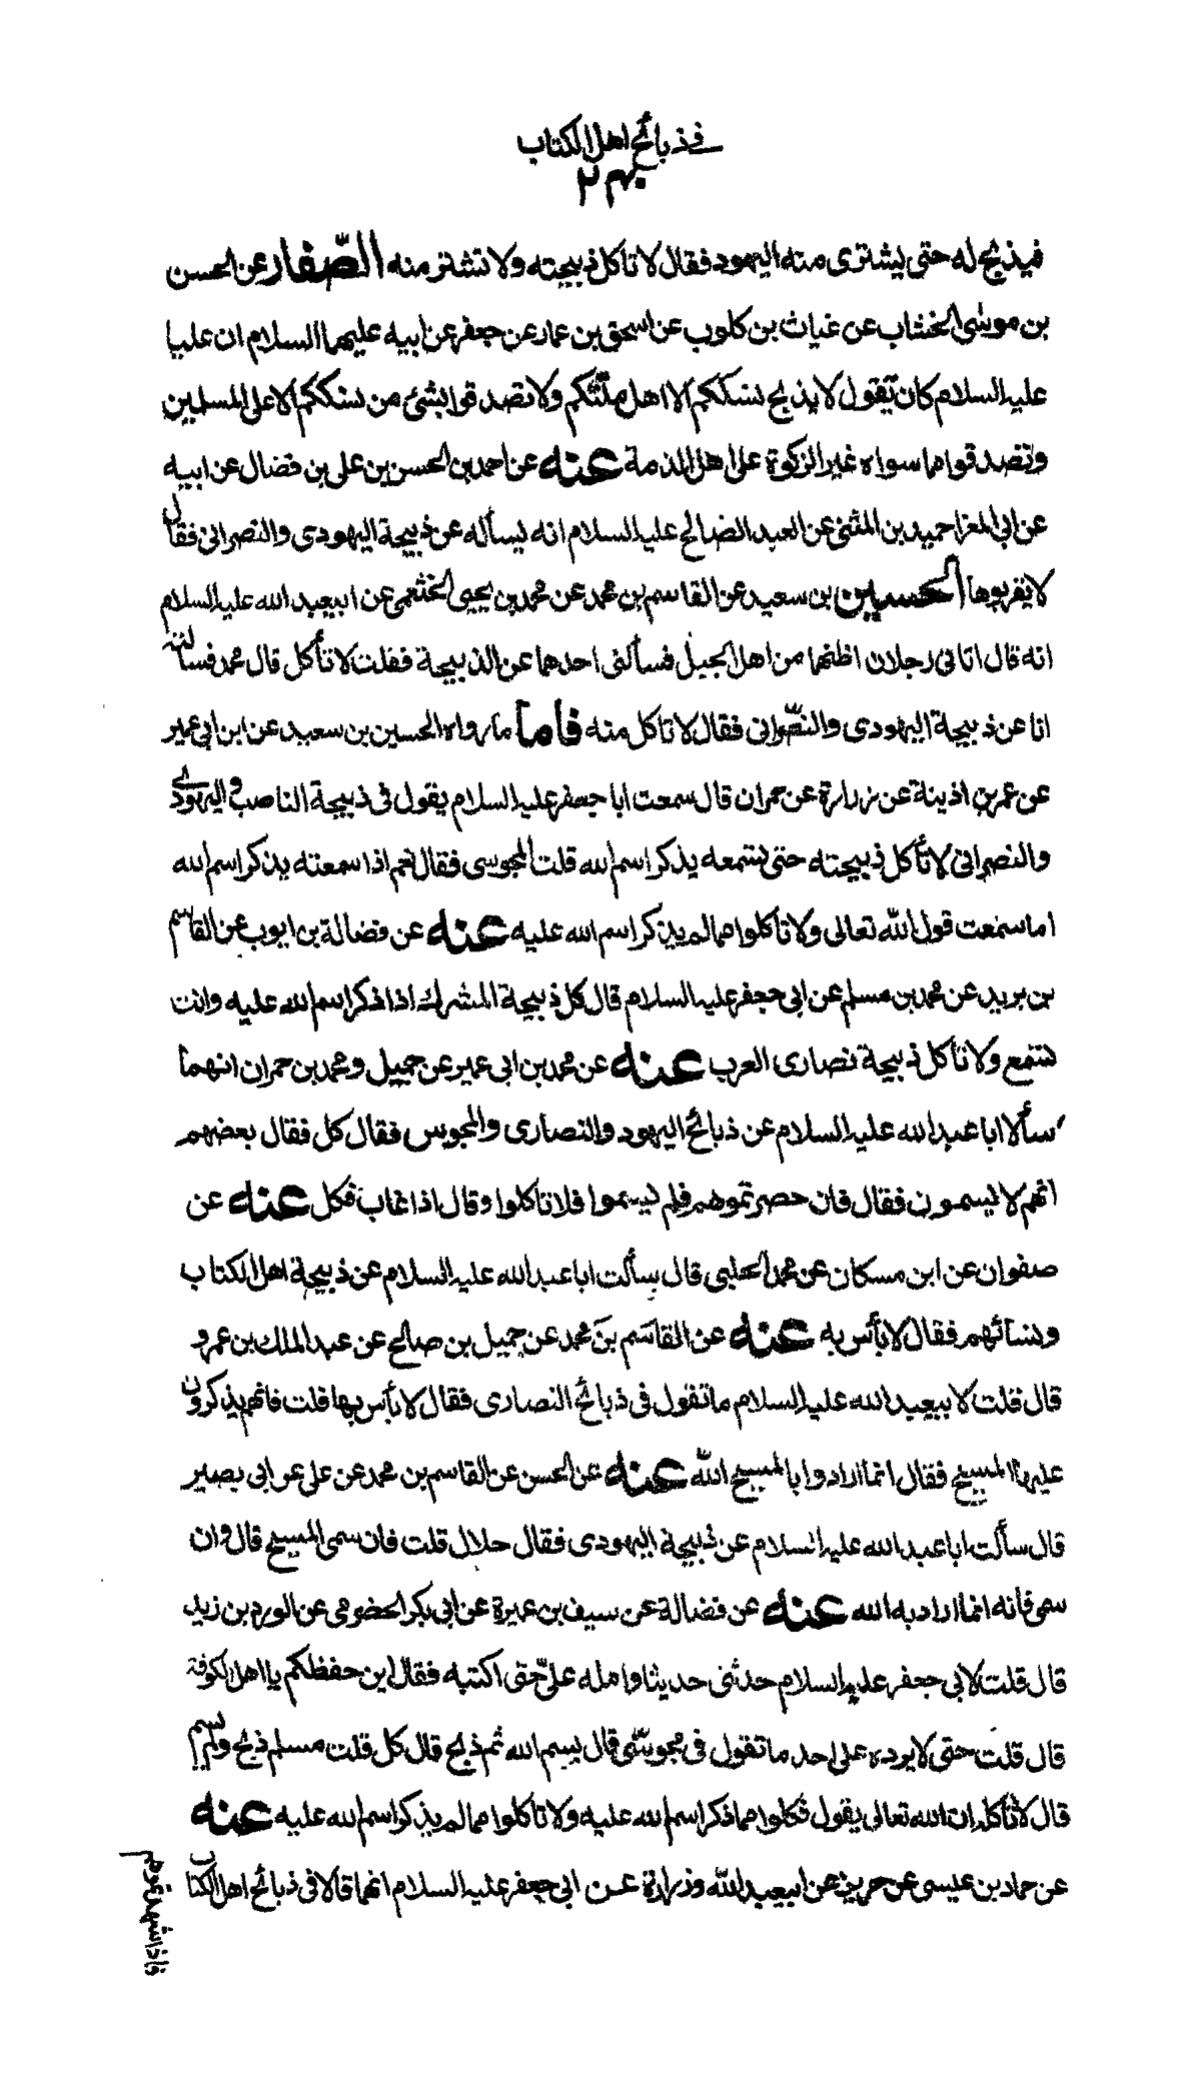 في ذبائح اهل الكتاب
فيذبح له حتى يشترى منه اليهود فقال لا تاكل ذبيحته ولا تشتر منه الصّفار عن الحسن
بن موسى الخشاب عن غياث بن كلوب عن اسحق بن عمار عن جعفر عن ابيه عليهما السلام ان عليا
عليه السلام كان يقول لا يذبح نسككم الا اهل ملّتكم ولا تصدقوا بشئ من نسككم الا على المسلمين
وتصدقوا مما سواه غير الزكوة على اهل الذمة عنه عن احمد بن الحسن بن على بن فضال عن ابيه
عن ابى المغرا حميد بن المثنى عن العبد الصالح عليه السلام انه يسأله عن ذبيحة اليهودى والنصرانى فقال
لا يقربوها الحسين بن سعيد عن القاسم بن محمد عن محمد بن يحيى الخثعمى عن ابيعبد الله عليه السلام
انه قال اتانى رجلان اظنهما من اهل الجبل فسألنى احدهما عن الذبيحة فقلت لا تأكل قال محمد فسألته
انا عن ذبيحة اليهودى والنصرانى فقال لا تاكل منه فاما ما رواه الحسين بن سعيد عن ابن ابى عمير
عن عمر بن اذينة عن زرارة عن حمران قال سمعت ابا جعفر عليه السلام يقول فى ذبيحة الناصب واليهودى
والنصرانى لا تأكل ذبيحته حتى تسمعه يذكر اسم الله قلت المجوسى فقال نعم اذا سمعته يذكر اسم الله
اما سمعت قول الله تعالى ولا تاكلوا مما لم يذكر اسم الله عليه عنه عن فضالة بن ايوب عن القاسم
بن بريد عن محمد بن مسلم عن ابى جعفر عليه السلام قال كل ذبيحة المشرك اذا ذكر اسم الله عليه وانت
تسمع ولا تاكل ذبيحة نصارى العرب عنه عن محمد بن ابى عمير عن جميل ومحمد بن حمران انهما
سألا ابا عبد الله عليه السلام عن ذبائح اليهود والنصارى والمجوس فقال كل فقال بعضهم
انهم لا يسمون فقال فان حضرتموهم فلم يسموا فلا تاكلوا وقال اذا غاب فكل عنه عن
صفوان عن ابن مسكان عن محمد الحلبى قال سألت ابا عبد الله عليه السلام عن ذبيحة اهل الكتاب
ونسائهم فقال لا بأس به عنه عن القاسم بن محمد عن جميل بن صالح عن عبد الملك بن عمرو
قال قلت لابيعبد الله عليه السلام ما تقول فى ذبائح النصارى فقال لا بأس بها قلت فانهم يذكرون
عليها المسيح فقال انما ارادوا بالمسيح الله عنه عن الحسن عن القاسم بن محمد عن على عن ابى بصير
قال سألت ابا عبد الله عليه السلام عن ذبيحة اليهودى فقال حلال قلت فان سمى المسيح قال وان
سمى فانه انما اراد به الله عنه عن فضالة عن سيف بن عميرة عن ابى بكر الحضرمى عن الورد بن زيد
قال قلت لابى جعفر عليه السلام حدثنى حديثا وامله علىّ حتى اكتبه فقال اين حفظكم يا اهل الكوفة
قال قلت حتى لا يرده على احد ما تقول فى مجوسّى قال بسم الله ثم ذبح قال كل قلت مسلم ذبح ولم يسم
قال لا تأكله ان الله تعالى يقول فكلوا مما ذكر اسم الله عليه ولا تاكلوا مما لم يذكر اسم الله عليه عنه
عن حماد بن عيسى عن حريز عن ابيعبد الله وزرارة عن ابى جعفر عليه السلام انهما قالا فى ذبائح اهل الكتاب